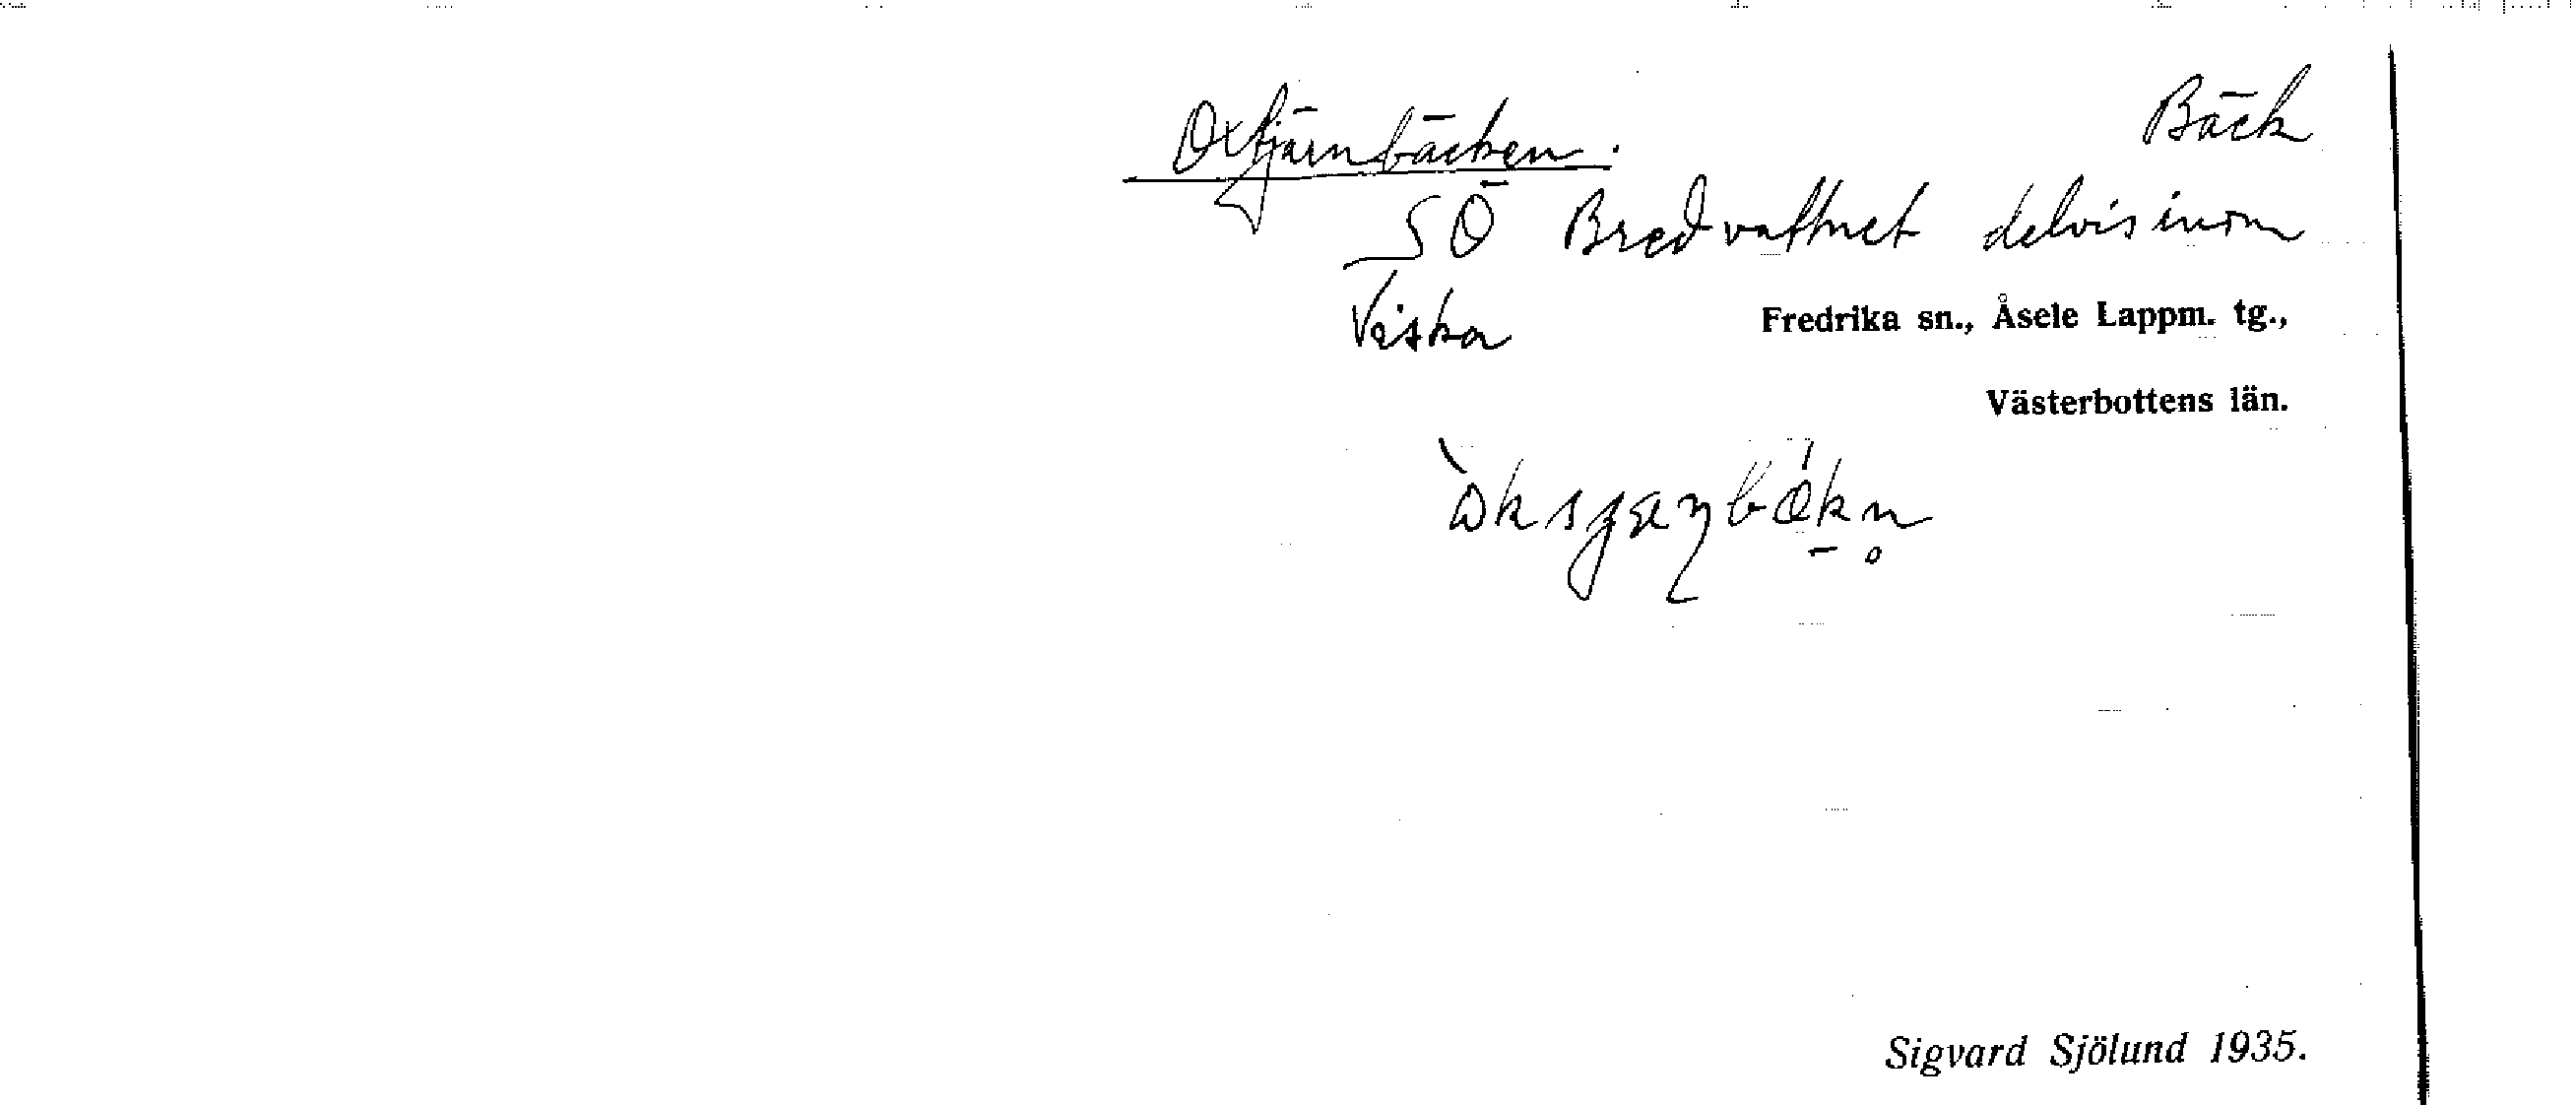 Oxtjärnbäcken. Bäck
SÖ Bredvattnet delvis inom
Viska Fredrika sn., Åsele Lappm. tg.,
Västerbottens län.
Sigvard Sjölund 1935.